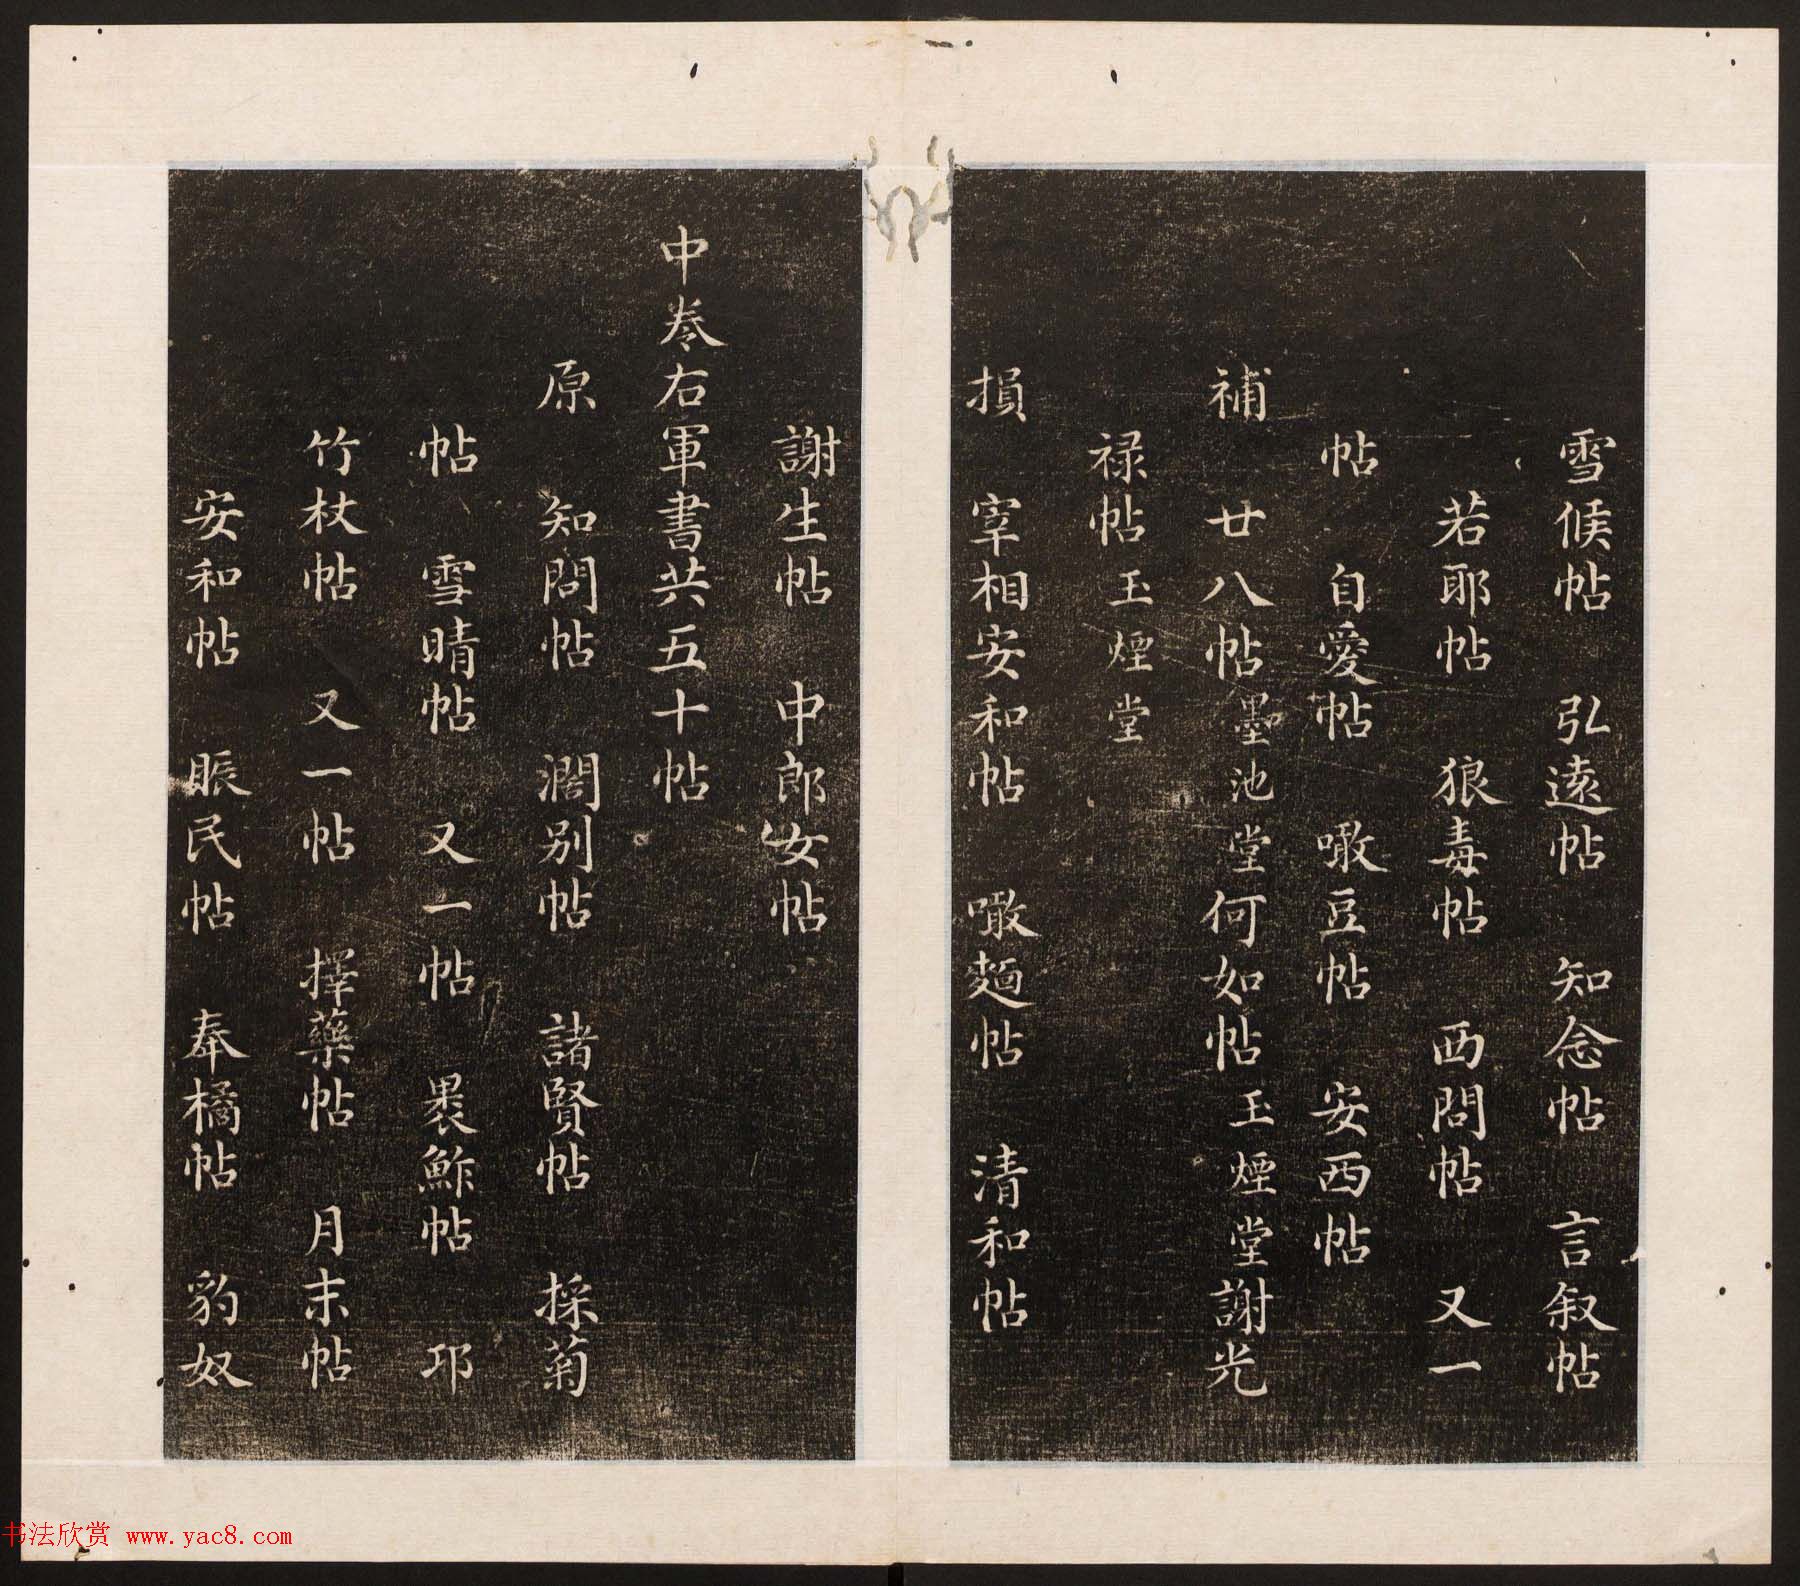 雪候帖 弘遠帖 知念帖 言叙帖
若耶帖 狼毒帖 西問帖 又一
帖 自愛帖 噉豆帖 安西帖
補 廿八帖墨池堂何如帖玉煙堂謝光
禄帖玉煙堂
損 宰相安和帖 噉麺帖 清和帖
謝生帖 中郎女帖
中卷右軍書共五十帖
原 知問帖 濶别帖 諸賢帖 採菊
帖 雪晴帖 又一帖 裹鮓帖 邛
竹杖帖 又一帖 擇藥帖 月末帖
安和帖 賑民帖 奉橘帖 豹奴
书法欣赏 www.yac8.com